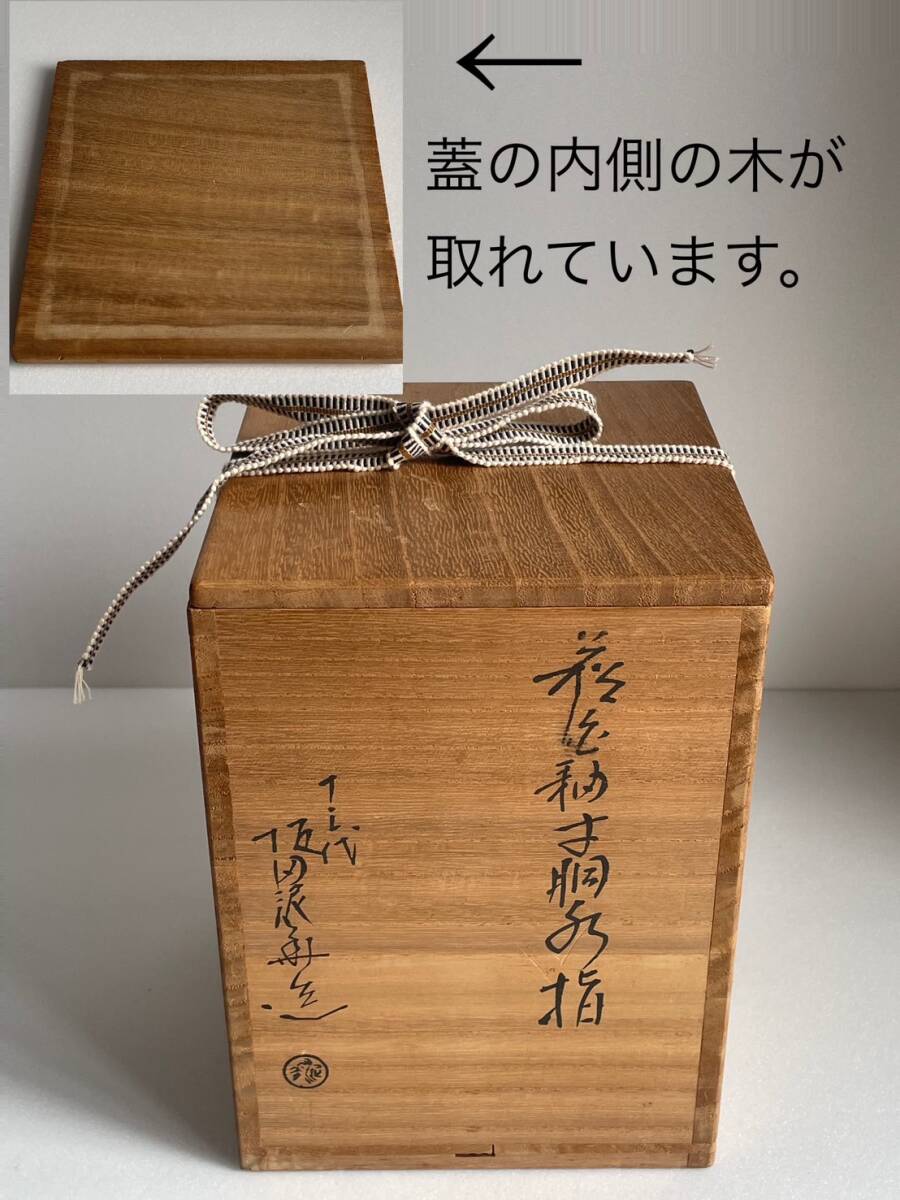 蓋の内側の木が
取れています。
萩白釉寸胴水指
十三代
坂田泥華造